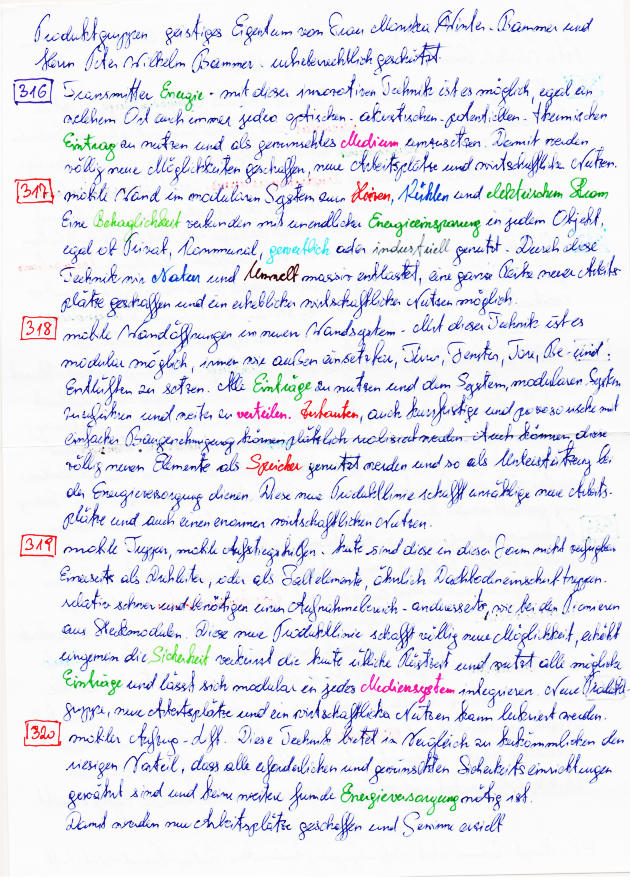 Produktgruppen geistiges Eigentum von Frau Monika Winter-Bammer und
Herrn Peter Wilhelm Bammer. urheberrechtlich geschützt.
316 Transmitter Energie - mit dieser innovativen Technik ist es möglich, egal an
welchem Ort auch immer jeden optischen - akustischen - potentiellen - thermischen
Eintrag zu nutzen und als gewünschtes Medium umzusetzen. Damit werden
völlig neue Möglichkeiten geschaffen, neue Arbeitsplätze und wirtschaftliche Nutzen.
317 mobile Wand im modularen System zum Heizen, Kühlen und elektrischem Strom
Eine Behaglichkeit verbunden mit unendlicher Energieeinsparung in jedem Objekt,
egal ob Privat, Kommunal, gewerblich oder industriell genutzt. Durch diese
Technik wir Natur und Umwelt massiv entlastet, eine ganze Reihe neuer Arbeits-
plätze geschaffen und ein erheblicher wirtschaftlicher Nutzen möglich.
318 mobile Wandöffnungen im neuen Wandsystem - Mit dieser Technik ist es
modular möglich, innen wie außen einsetzbar, Türen, Fenster, Tore, Be- und
Entlüften zu setzen. Alle Einträge zu nutzen und dem System, modularen System
zuzuführen und weiter zu verteilen. Zubauten, auch kurzfristige und provisorische mit
einfacher Baugenehmigung können plötzlich realisiert werden. Auch können diese
völlig neuen Elemente als Speicher genutzt werden und so als Unterstützung bei
der Energieversorgung dienen. Diese neue Produktlinie schafft unzählige neue Arbeits-
plätze und auch einen enormen wirtschaftlichen Nutzen.
319 mobile Treppen, mobile Aufstiegshilfen. heute sind diese in dieser Form nicht verfügbar
Einerseits als Drehleiter, oder als Faltelemente, ähnlich Dachbodeneinschubtreppen.
relativ schwer und benötigen einen Aufnahmebereich - andererseits, wie bei den Pionieren
aus Steckmodulen. Diese neue Produktlinie schafft völlig neue Möglichkeit, erhöht
ungemein die Sicherheit verkürzt die heute übliche Rüstzeit und nutzt alle mögliche
Einträge und lässt sich modular in jedes Mediensystem integrieren. Neue Produkt-
gruppe, neue Arbeitsplätze und ein wirtschaftlicher Nutzen kann lukriert werden.
320 mobiler Aufzug - Lift. Diese Technik bietet im Vergleich zu herkömmlichen den
riesigen Vorteil, dass alle erforderlichen und gewünschten Sicherheitseinrichtungen
gewährt sind und keine weitere fremde Energieversorgung nötig ist.
Damit werden neue Arbeitsplätze geschaffen und Gewinne erzielt